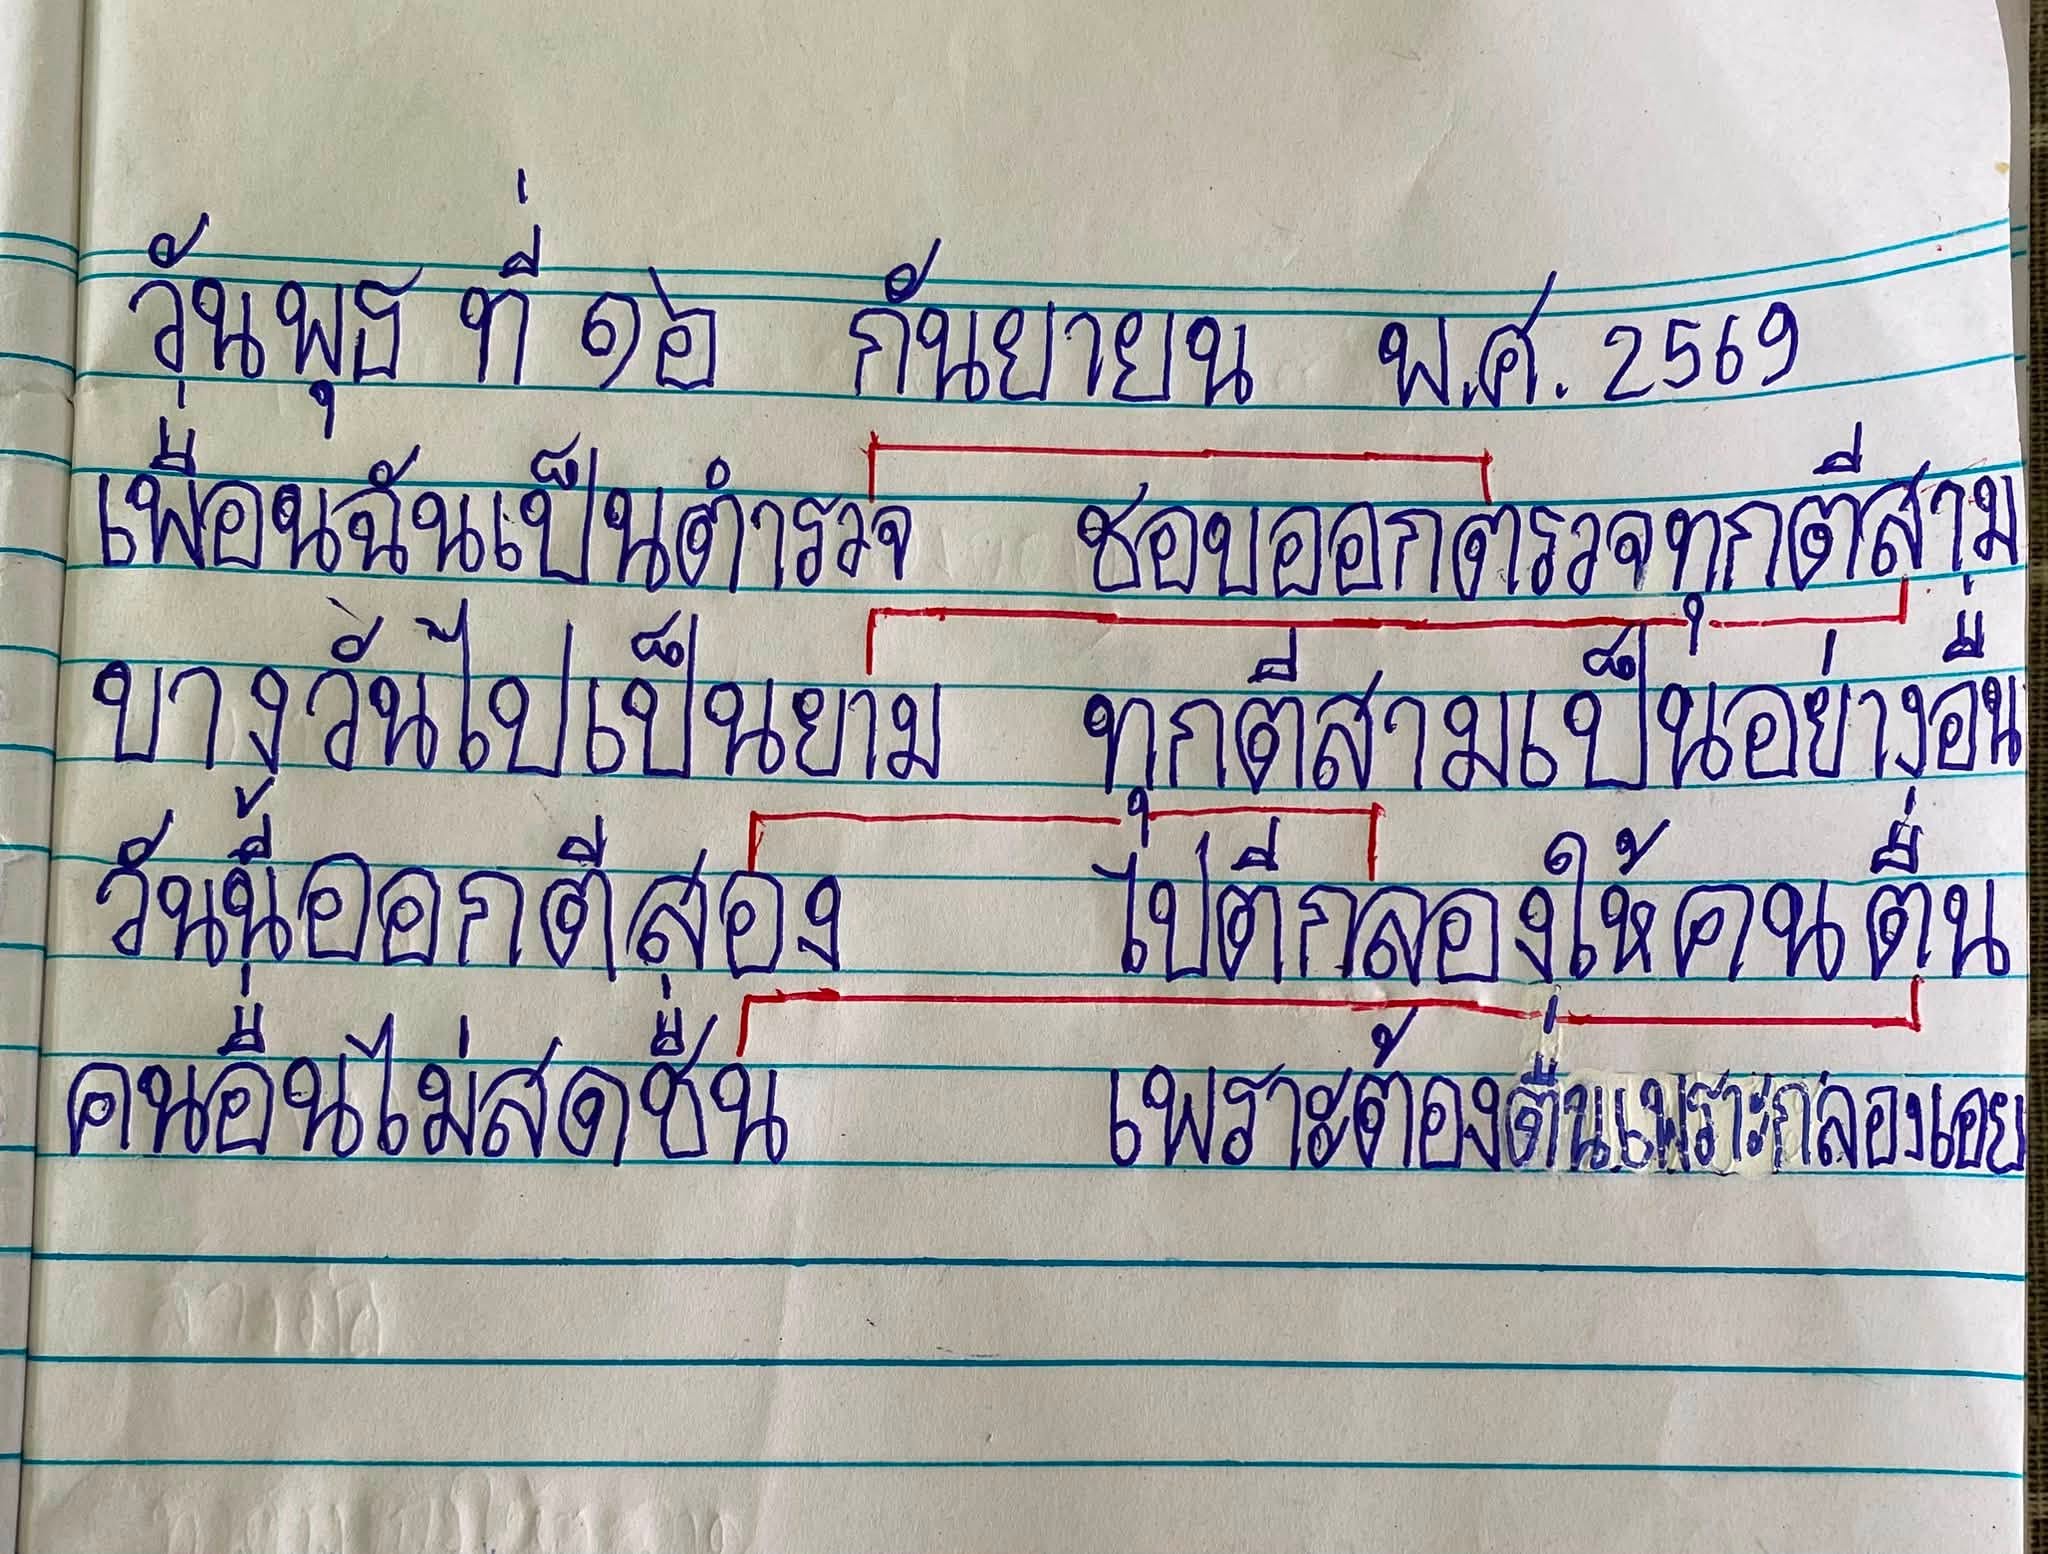 วันพุธ ที่ ๑๖ กันยายน พ.ศ. 2569
เพื่อนฉันเป็นตำรวจ ชอบออกตรวจทุกตีสาม
บางวันไปเป็นยาม ทุกตีสามเป็นอย่างอื่น
วันนี้ออกตีสอง ไปตีกลองให้คนตื่น
คนอื่นไม่สดชื่น เพราะต้องตื่นเพราะกลองเอย